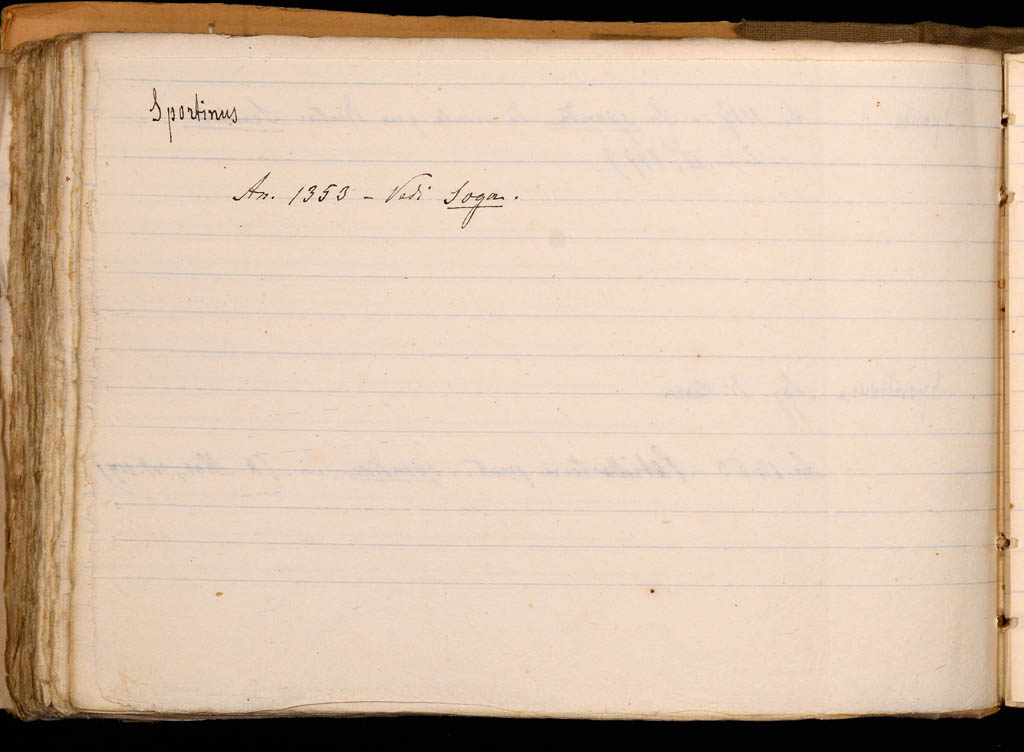 Sportinus
An. 1353 - Vedi Soga.